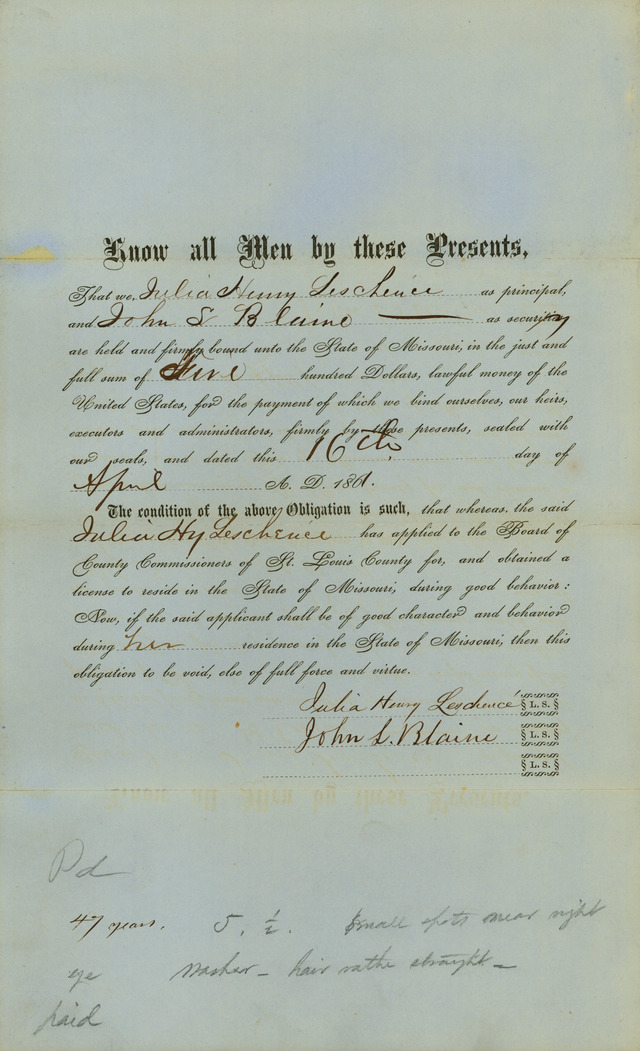 Know all Men by these Presents,
That we, Julia Henry Leschence as principal,
and John L Blaine as security
are held and firmly bound unto the State of Missouri, in the just and
full sum of Five hundred Dollars, lawful money of the
United States, for the payment of which we bind ourselves, our heirs,
executors and administrators, firmly by these presents, sealed with
our seals, and dated this 16th day of
April A. D. 1861.
The condition of the above Obligation is such, that whereas, the said
Julia Hy Leschence has applied to the Board of
County Commissioners of St. Louis County for, and obtained a
license to reside in the State of Missouri, during good behavior:
Now, if the said applicant shall be of good character and behavior
during her residence in the State of Missouri, then this
obligation to be void, else of full force and virtue.
Julia Henry Leschence L. S.
John L. Blaine L. S.
L. S.
Pd
47 years. 5. 1/2. Small spots near right
eye Washer - hair rathe straight -
paid